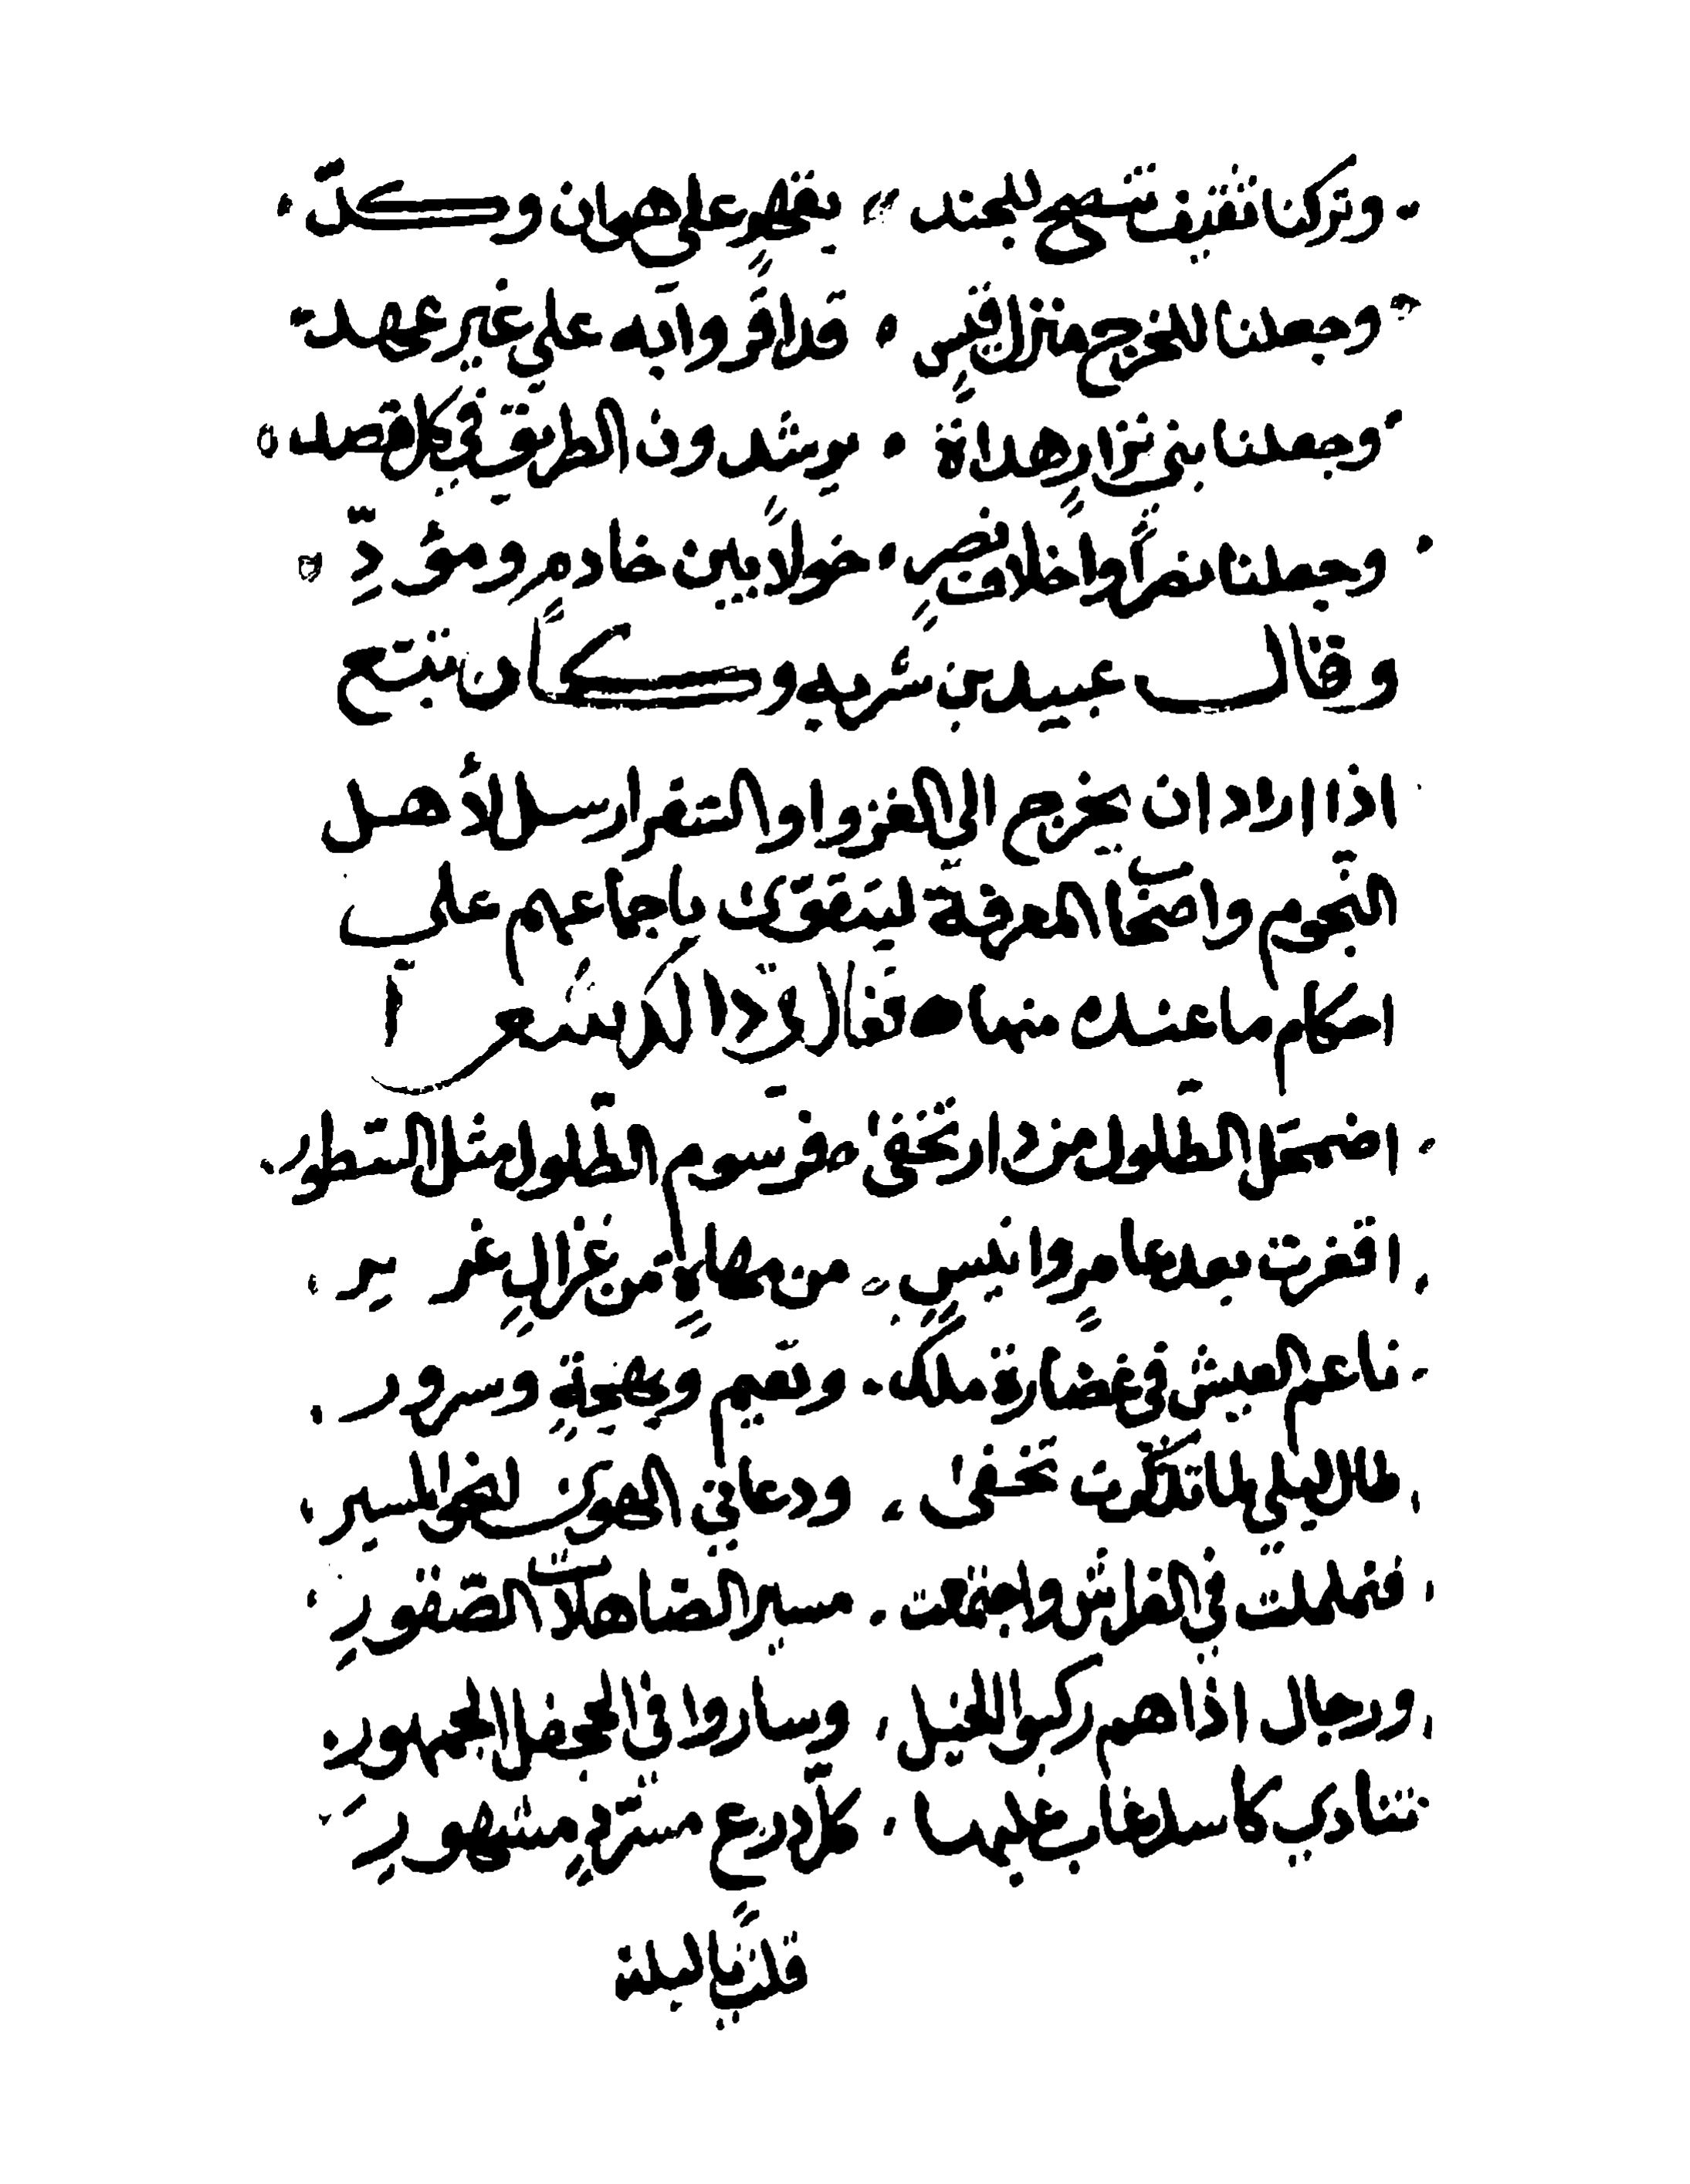 وتركنا ثقيف تسبح للجند بقهر على هوان وكدّ
وجعلنا للخرج منزل قيس قد اقروا به على غير عهد
وجعلنا بني نزار هداة يرشدون الطريق في كل قصد
وجعلنا نصراً واخلاف نصر خولاً بين خادم ومؤدّ
وقال عبيد بن شريه وكان تبّع
اذا اراد ان يخرج الى الغزو او السّفر ارسل لأهل
النّجوم واصحاب المعرفة ليتقوّى باجماعهم على
احكام ما عندك منها فقال في ذالك شعراً
اضمحل الطّلول من دار تخفى فرسوم الطّلول مثل السّطور
اقفرت بعد عامرٍ وانيسٍ من مهاةٍ ومن غزالٍ غرير
ناعم العيش في غضارة ملك ونعيم وبهجةٍ وسرور
طال ليلي لما تذكّرت تخفى ودعاني الهوى لضوالمسير
فتململت في الفراش واجتمعت مسير الصّاهلات الصّقور
ورجال اذا هم ركبوا الخيل وساروا في الجحفل الجمهور
تنادي كاسد غاب عليها كلّ درع مسّردٍ مشهور
قد تيّاليلة